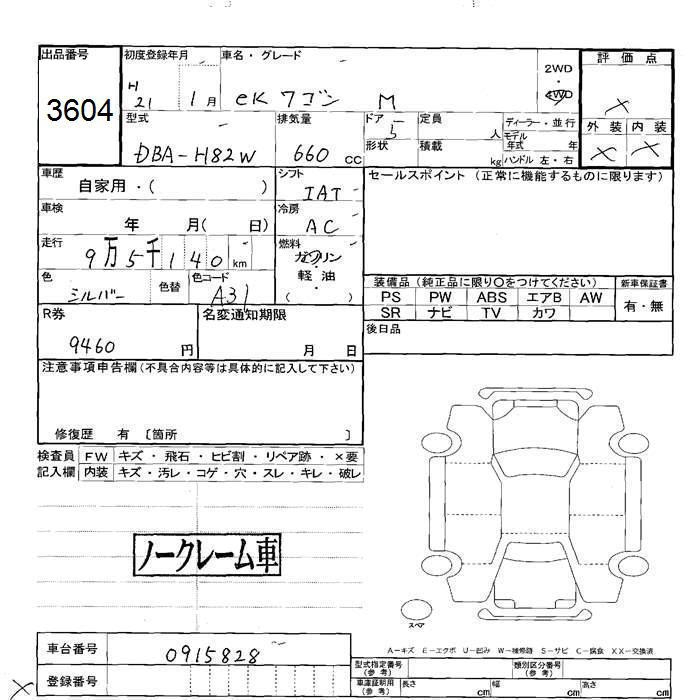 出品番号
3604
初度登録年月
H
21 1月
車名・グレード
eK ワゴン M
2WD
4WD
評価点
×
外装 内装
× ×
型式
DBA-H82W
排気量
660 cc
ドア
5
形状
定員
人
積載
kg
ディーラー・並行
モデル年式 年
ハンドル 左・右
車歴
自家用・( )
シフト
IAT
セールスポイント (正常に機能するものに限ります)
車検
年 月( 日)
冷房
AC
走行
9万5千140 km
燃料
ガソリン
・
軽・油
( )
色
シルバー
色替
色コード
A31
装備品 (純正品に限り○をつけてください)
新車保証書
PS PW ABS エアB AW
有・無
SR ナビ TV カワ
後日品
R券
9460 円
名変通知期限
月 日
注意事項申告欄(不具合内容等は具体的に記入して下さい)
修復歴 有 〔箇所 〕
検査員 FW キズ・飛石・ヒビ割・リペア跡・×要
記入欄 内装 キズ・汚レ・コゲ・穴・スレ・キレ・破レ
ノークレーム車
スペア
A-キズ E-エクボ U-凹み W-補修跡 S-サビ C-腐食 XX-交換済
車台番号
0915828
登録番号
×
型式指定番号
(参考)
類別区分番号
(参考)
車庫証明用
(参考)
長さ cm 幅 cm 高さ cm